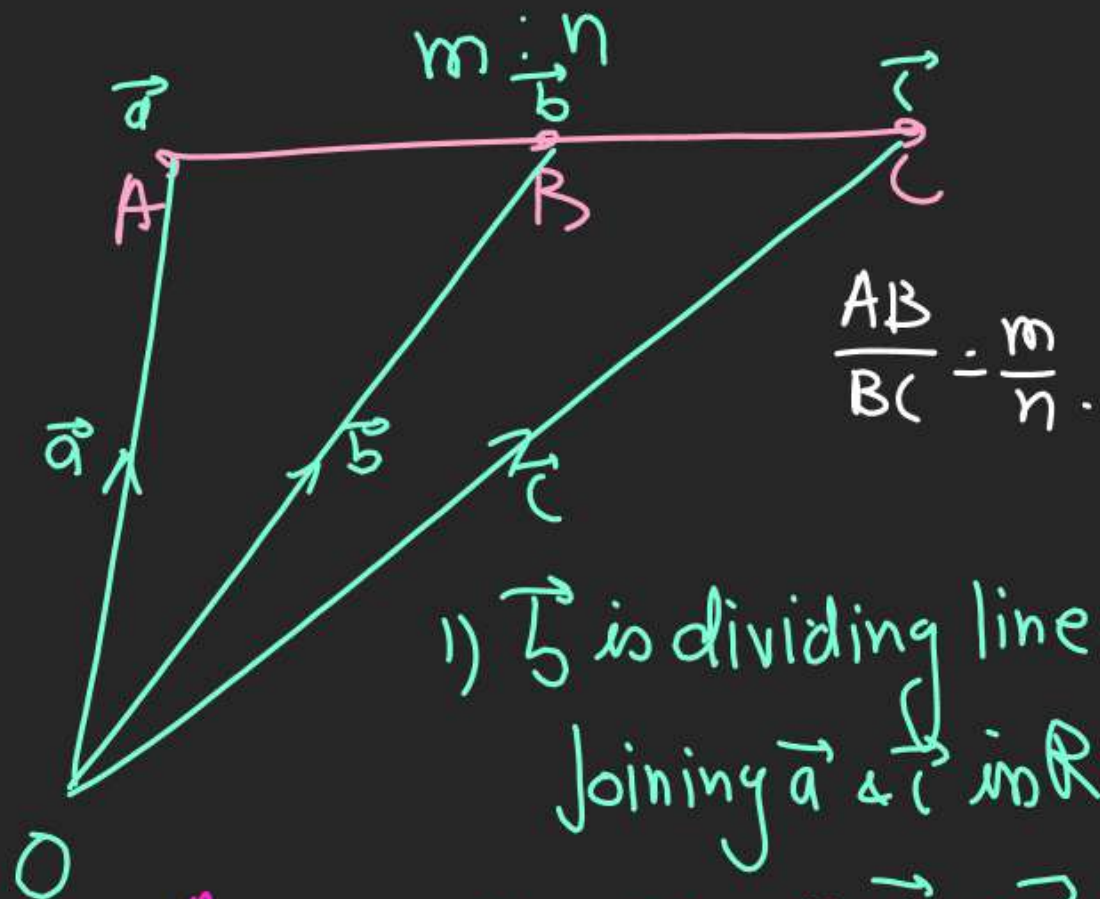 m : n
a⃗ b⃗ c⃗
A B C
AB/BC = m/n.
a⃗ b⃗ c⃗
1) b⃗ is dividing line
Joining a⃗ & c⃗ in R
O